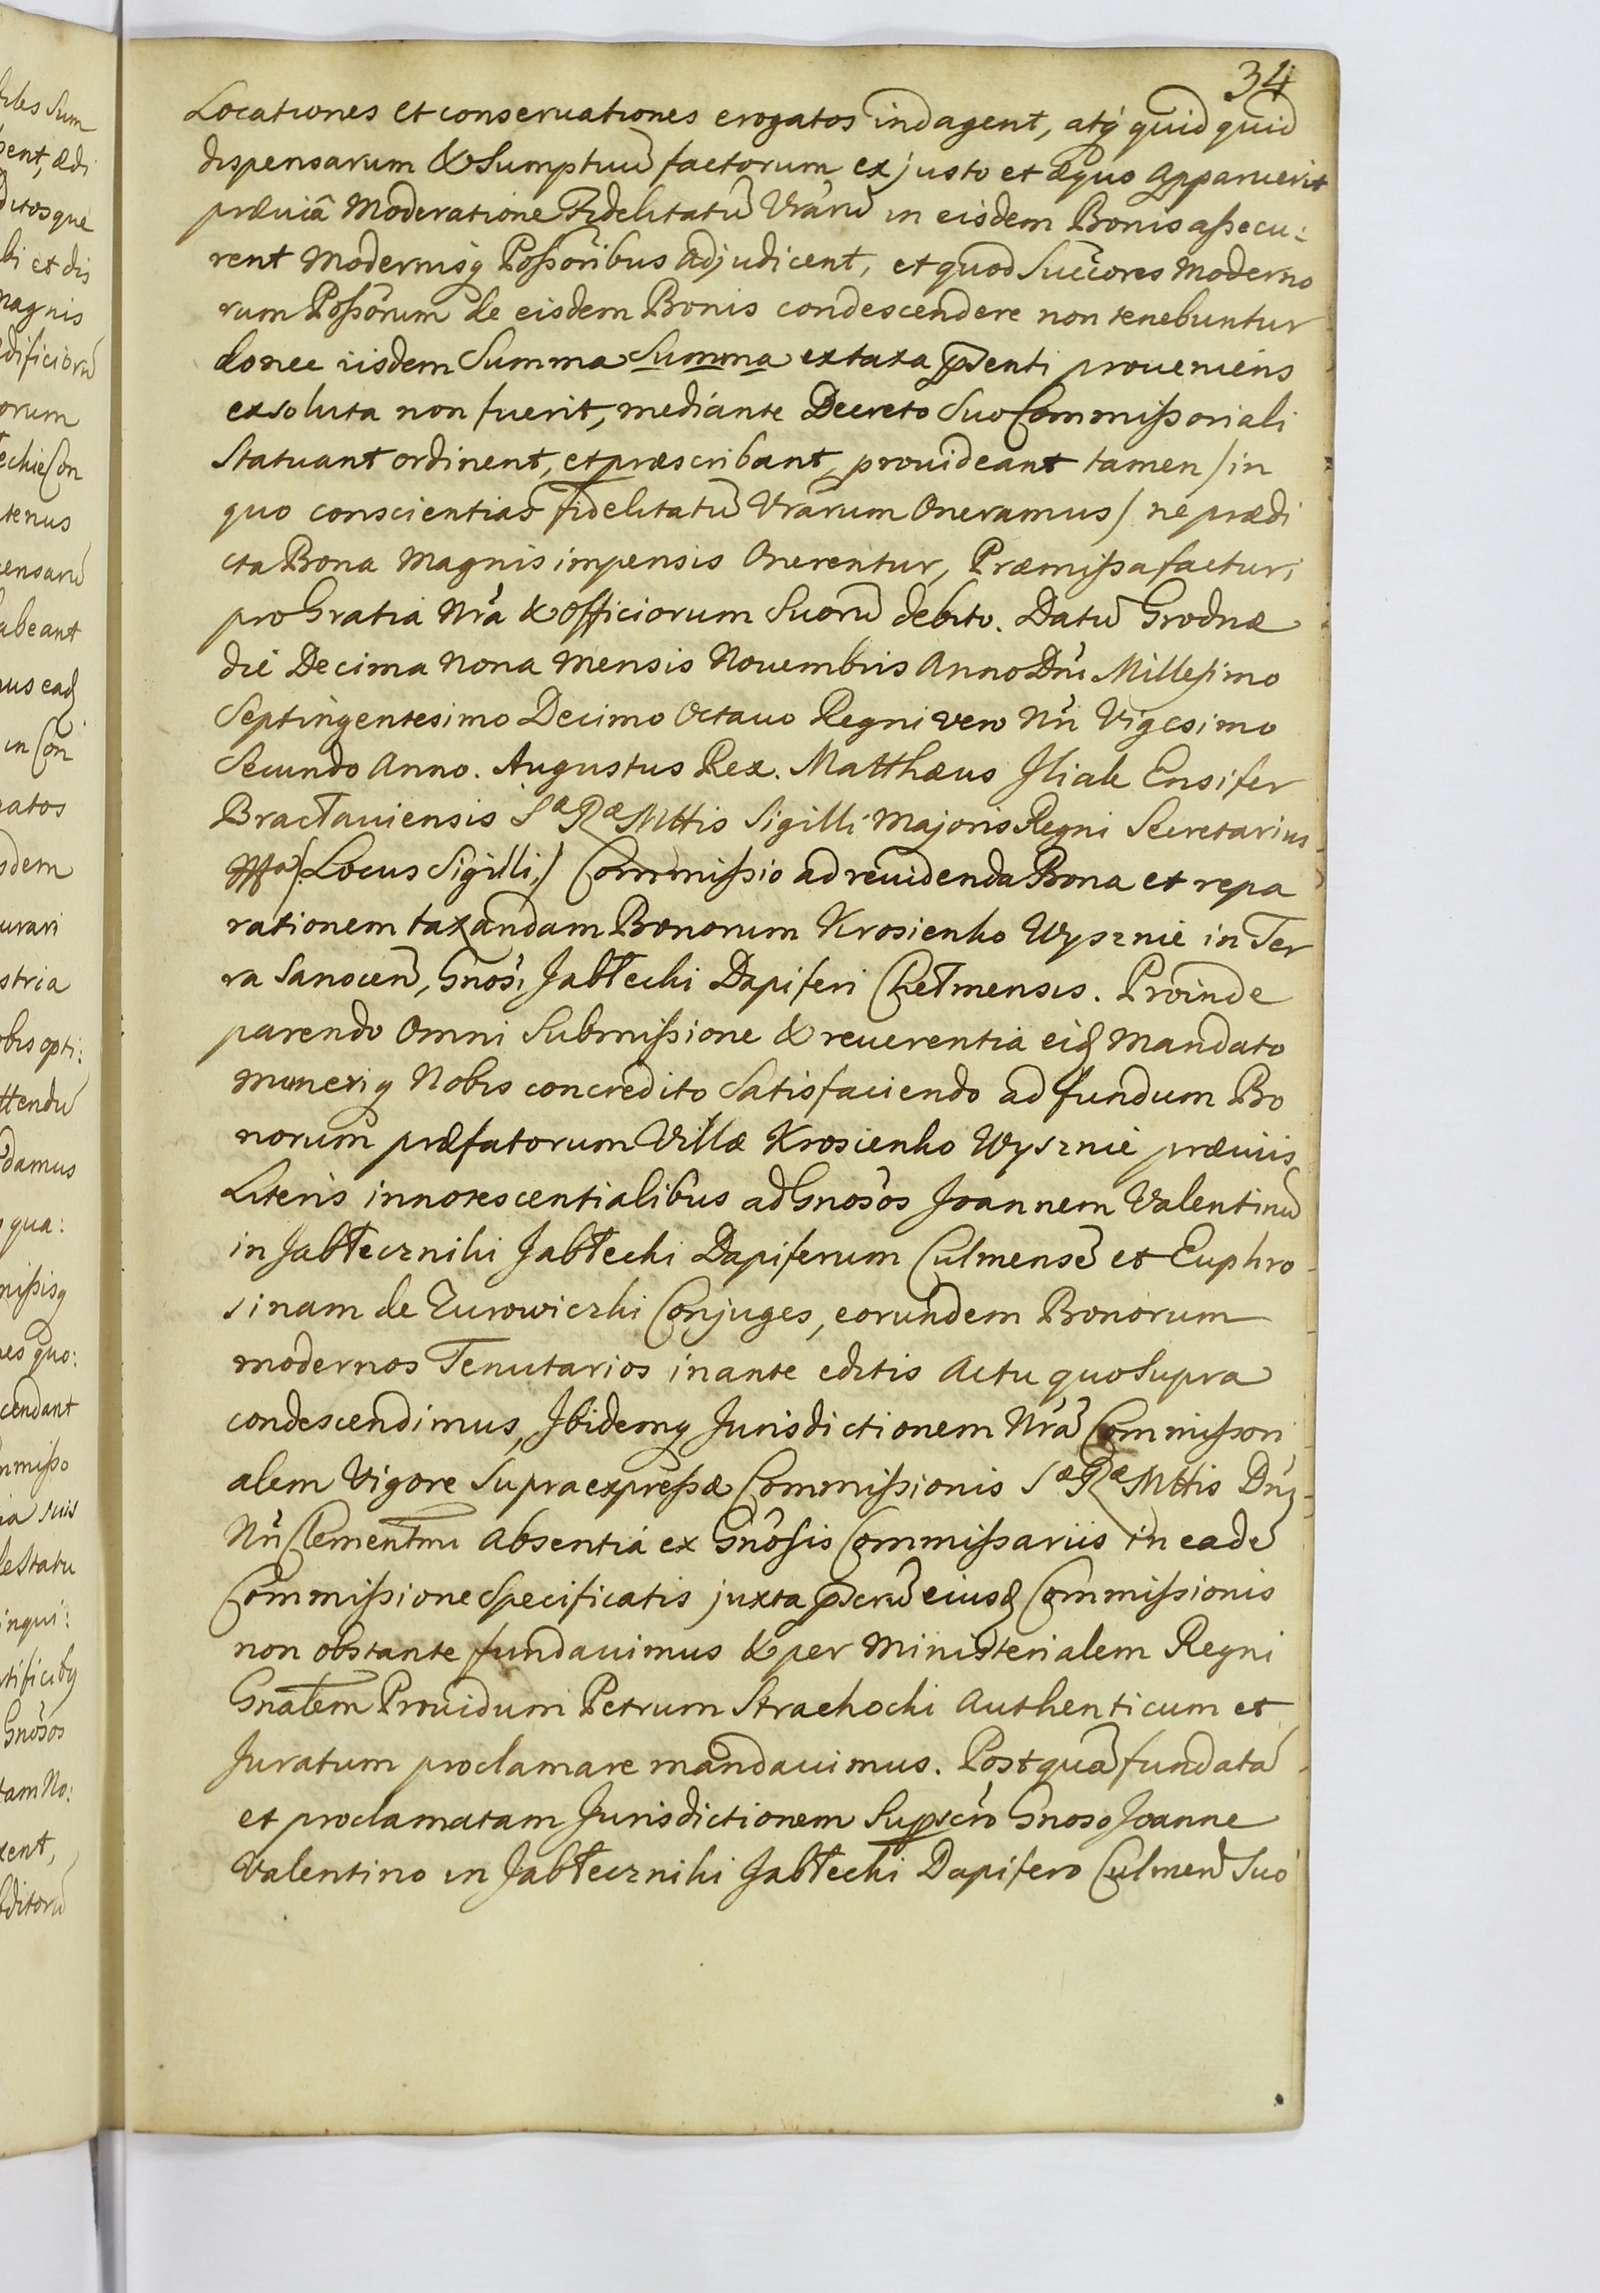 34
Locationes et conservationes erogatos indagent, atq́ quid quid
dispensarum & Sumptuũ factorum ex justo et æquo Apparuerit
præviâ Moderatione Fidelitatũ Vrãrũ in eisdem Bonis aßecu:
rent Modernisq́ Poßoribus Adjudicent, et quod Succores Moderno
rum Poßorum de eisdem Bonis condescendere non tenebuntur
donec iisdem Summa Summa ex taxa pśenti proveniens
exsoluta non fuerit, mediante Decreto Suo Commißoriali
Statuant ordinent, et præscribant, provideant tamen / in
quo conscientias fidelitatũ Vrãrum Oneramus / ne prædi
cta Bona Magnis impensis Onerentur, Præmißa facturi
pro Gratia Nrá & Officiorum Suorũ debito. Datũ Grodnæ
die Decima Nona Mensis Novembris Anno Dni Millesimo
Septingentesimo Decimo Octavo Regni vero Nri Vigesimo
Secundo Anno. Augustus Rex. Matthæus Iliak Ensifer
Bracłaviensis Sæ Ræ Mttis Sigilli Majoris Regni Secretarius
/: Locus Sigilli :/ Commißio ad revidenda Bona et repa
rationem taxandam Bonorum Krosienko Wysznie in Ter
ra Sanocen, Gnosi Jabłecki Dapiferi Chełmensis. Proinde
parendo Omni Submißione & reverentia eid Mandato
Muneriq Nobis concredito Satisfaciendo ad fundum Bo
norum præfatorum Villæ Krosienko Wysznie præviis
Literis innotescentialibus ad Gnosos Joannem Valentinũ
in Jabłeczniki Jabłecki Dapiferum Culmensẽ et Euphro
sinam de Turowiczki Conjuges, eorundem Bonorum
modernos Tenutarios inante editis Actu quo Supra
condescendimus, Ibidemq Jurisdictionem Nrã Commißori
alem Vigore Supraexpreßæ Commißionis Sæ Ræ Mttis Dni
Nri Clementmi Absentiá ex Gnosis Commißariis in eadẽ
Commißione Specificatis juxta pscrũ eiusd Commißionis
non obstante fundavimus & per Ministerialem Regni
Gnałem Providum Petrum Strachocki Authenticum et
Juratum proclamare mandavimus. Post quã fundatã
et proclamatam Jurisdictionem Supscro Gnoso Joanne
Valentino in Jabłeczniki Jabłecki Dapifero Culmen Suo